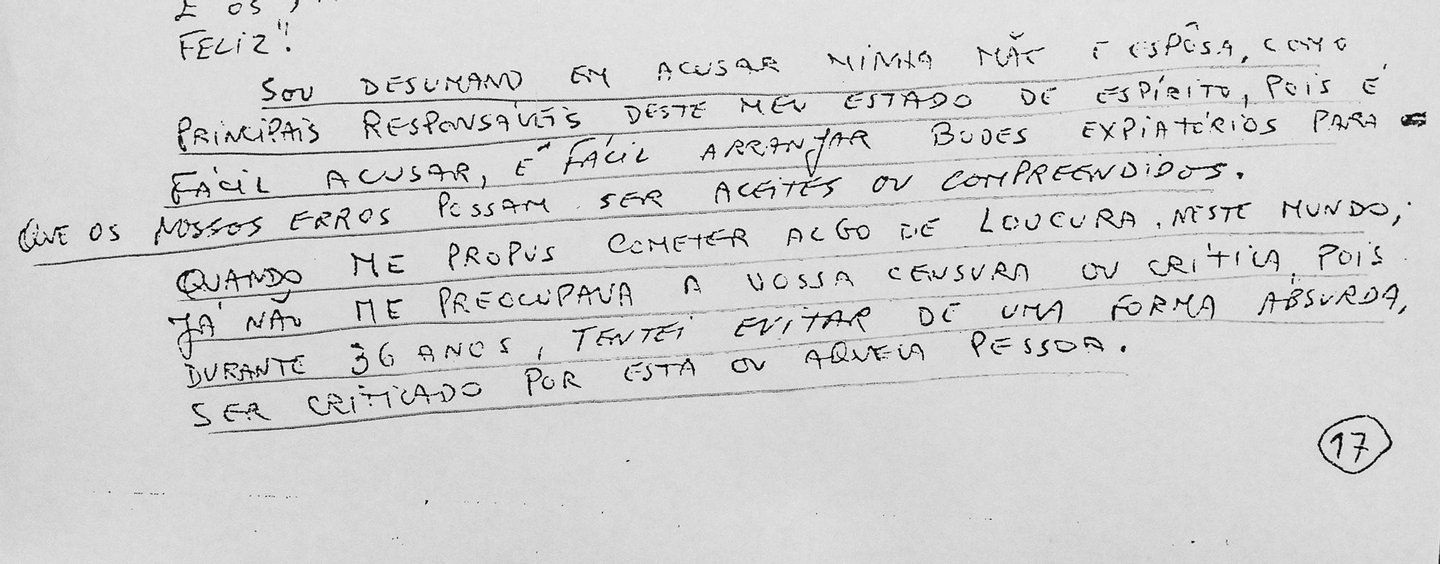 E OS,
FELIZ".
SOU DESUMANO EM ACUSAR MINHA MÃE E ESPÔSA, COMO
PRINCIPAIS RESPONSÁVEIS DESTE MEU ESTADO DE ESPÍRITO, POIS É
FÁCIL ACUSAR, É FÁCIL ARRANJAR BODES EXPIATÓRIOS PARA
QUE OS NOSSOS ERROS POSSAM SER ACEITES OU COMPREENDIDOS.
QUANDO ME PROPUS COMETER ALGO DE LOUCURA, NESTE MUNDO,
JÁ NÃO ME PREOCUPAVA A VOSSA CENSURA OU CRÍTICA, POIS
DURANTE 36 ANOS, TENTEI EVITAR DE UMA FORMA ABSURDA,
SER CRITICADO POR ESTA OU AQUELA PESSOA.
17